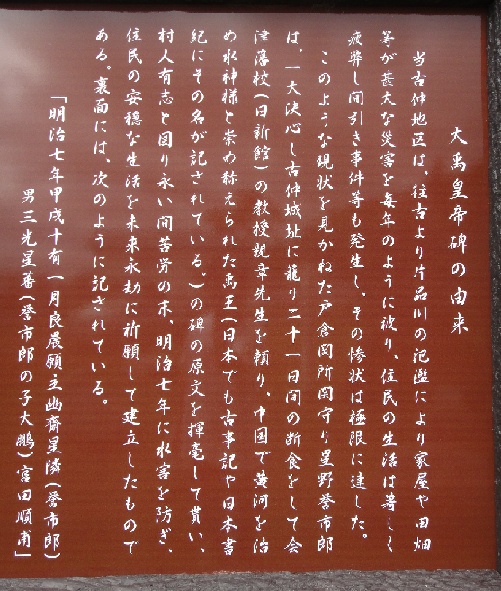 大禹皇帝碑の由来
当古仲地区は、往古より片品川の氾濫により家屋や田畑
等が甚大な災害を毎年のように被り、住民の生活は著しく
疲弊し間引き事件等も発生し、その惨状は極限に達した。
このような現状を見かねた戸倉関所関守り星野誉市郎
は、一大決心し古仲城址に籠り二十一日間の断食をして会
津藩校(日新館)の教授親章先生を頼り、中国で黄河を治
め水神様と崇め称えられた禹王(日本でも古事記や日本書
紀にその名が記されている。)の碑の原文を揮毫して貰い、
村人有志と図り永い間苦労の末、明治七年に水害を防ぎ、
住民の安穏な生活を未来永劫に祈願して建立したもので
ある。裏面には、次のように記されている。
「明治七年甲戌十有一月良辰願主幽斎星隣(誉市郎)
男三光星蕃(誉市郎の子大鵬)宮田順甫」